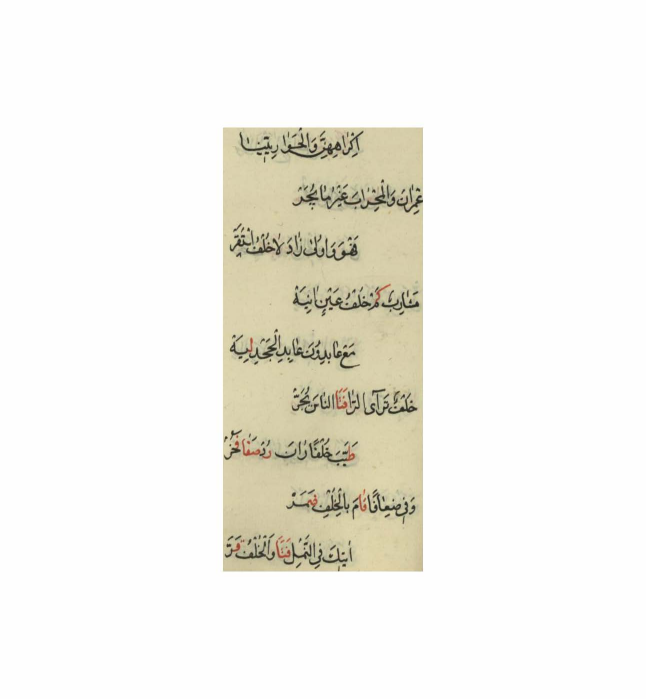 إِكْرَاهِهِنَّ وَالْحَوَارِيِّينَا
عِمْرَانَ وَالْمِحْرَابَ غَيْرَ مَا يُجَرْ
فَهْوَ وَاولَى زَادَ لَا خُلْفُ اسْتَقَرْ
مَشَارِبُ كَمْ خُلْفُ عَيْنٍ آنِيَهْ
مَعْ عَابِدُونَ عَابِدِ الْجَحْدِ
خُلْفٌ تَرَآى الرَّا فَتَا النَّاسَ بُجَرْ
طَيِّبَ خُلْفًا رَانَ رُدْ صَفَا فَخَرْ
وَفِي ضِعَافًا قَامَ بِالْخُلْفِ ضَمَرْ
آتِيكَ فِي النَّمْلِ فَتًا وَالْخُلْفُ قَرْ